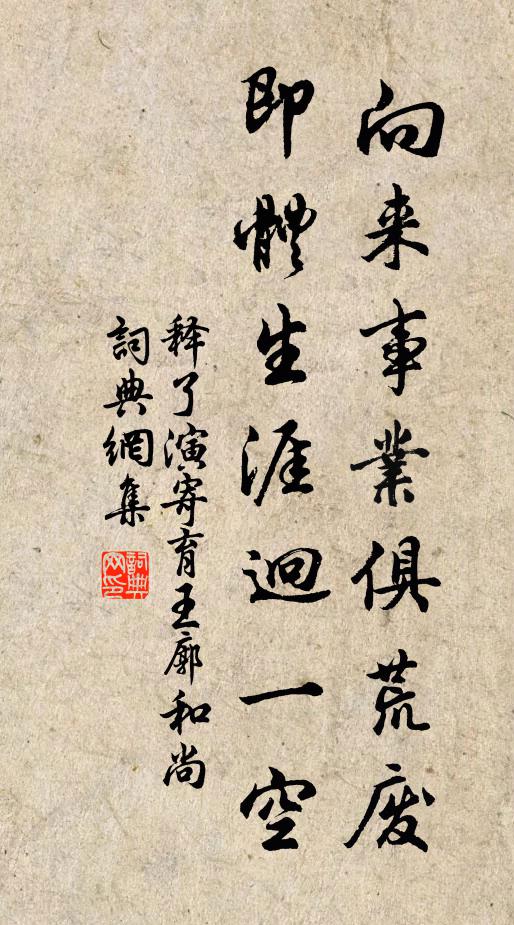 向来事業俱荒废
即體生涯迥一空
释了演寄育王廓和尚
詞典網集
詞典网印